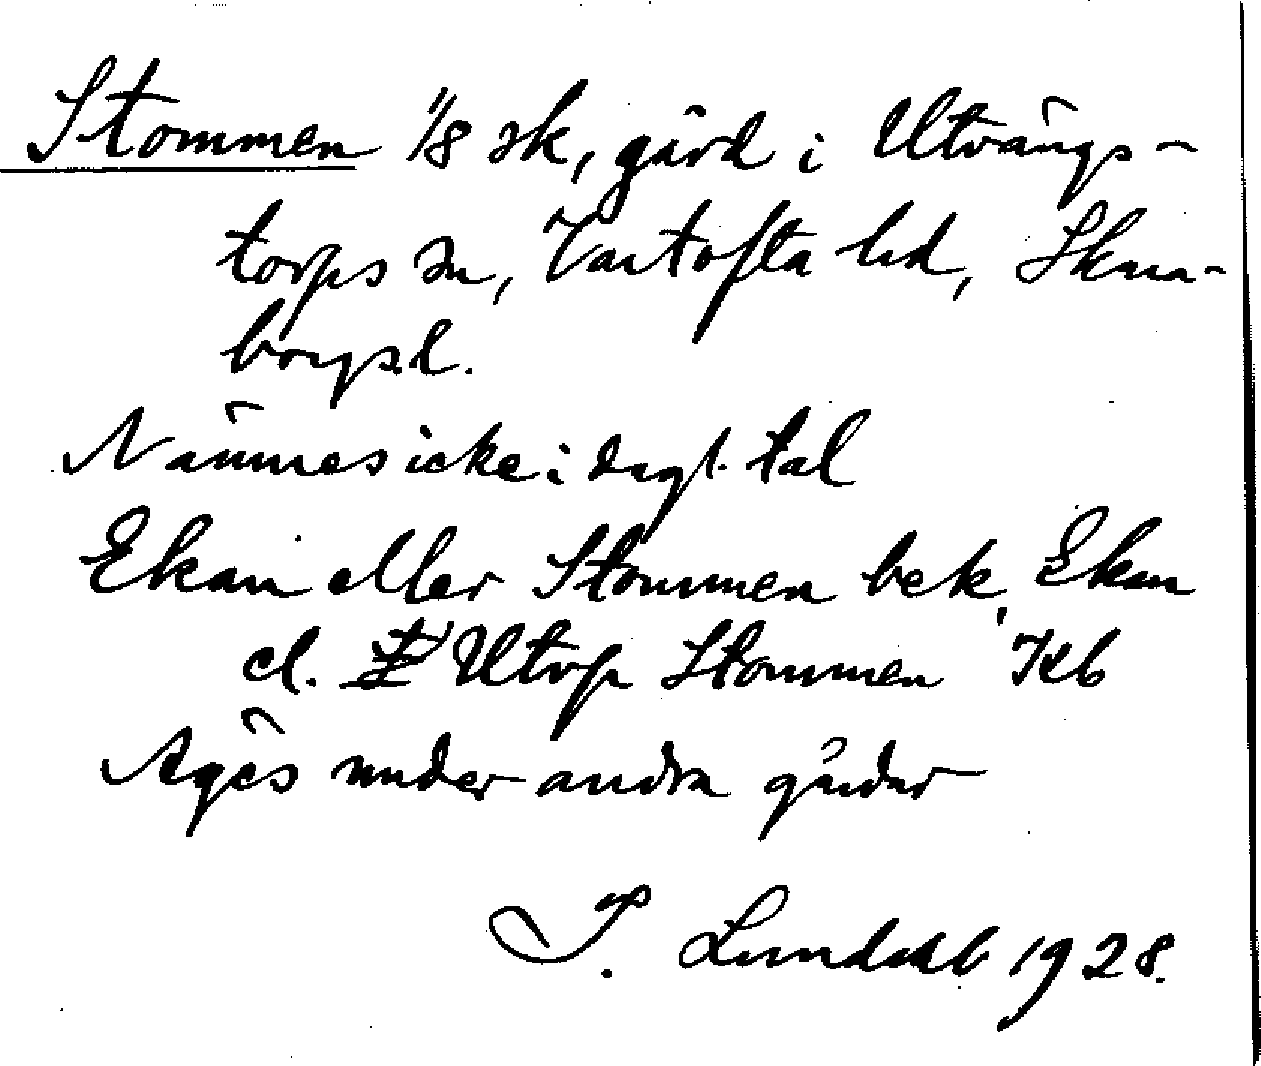 Stommen 1/8 sk, gård i Utvängs-
torps sn, Vartofta hd, Skara-
borgs l.
Nämnes icke i dagl. tal
Ekan eller Stommen bek, Ekan
el. Utvp Stommen Kb
Äges under andra gårdar
S. Lundahl 1928.